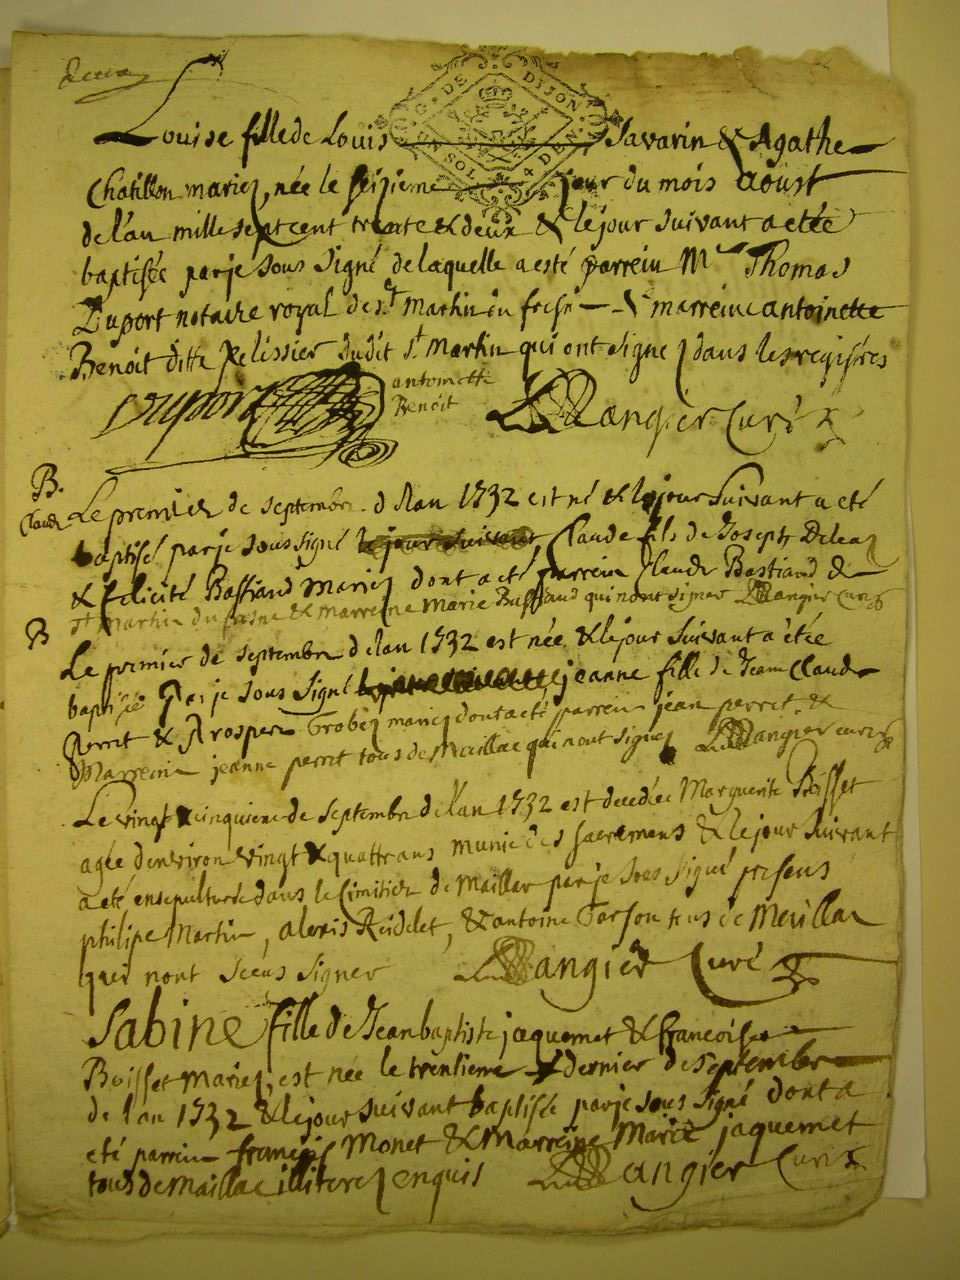 G. DE DIJON
UN SOL 4 DEN
Louise fille de Louis Savarin & Agathe
Chatillon mariez, née le seizieme jour du mois aoust
de l'an mille sept cent trente & deux & le jour suivant a etée
baptisée par je sous signé de laquelle a esté parrein Mr Thomas
Duport notaire royal de st Martin du fresn & marreine antoinette
Benoit ditte pelissier dudit st Martin qui ont signez dans les registres
Duport antoinette
Benoit Mangier Curé
B.
Claude Le premier de septembre d l'an 1732 est né & le jour suivant a eté
baptisé par je sous signé le jour suivant, Claude fils de Joseph
& felicité Bastiand mariez dont a eté parrein Claude Bastiand de
st Martin du fresne & marreine Marie Bastiand qui n'ont signer Mangier Curé
B
Le premier de septembre d l'an 1732 est née & le jour suivant a etée
baptisée par je sous signé jeanne fille de Jean Claude
Perret & Prospere mariez dont a eté parrein jean perret &
Marreine jeanne perret tous de Maillac qui n'ont signez Mangier curé
Le vingt & cinquieme de septembre de l'an 1732 est decedée Marguerite
agée d'environ vingt & quattr ans munie des sacremens & le jour suivant
a eté ensepulturée dans le Cimitier de Maillac par je sous signé presens
philipe Martin, alexis & antoine tous de Meillac
qui n'ont sceus signer Mangier Curé
Sabine fille de Jean baptiste jaquemet & francoise
Boisset mariez, est née le trentieme & dernier de septembre
de l'an 1732 & le jour suivant baptisée par je sous signé dont a
eté parrein francois Monet & Marreine Marie jaquemet
tous de maillac illiterez enquis Mangier Curé